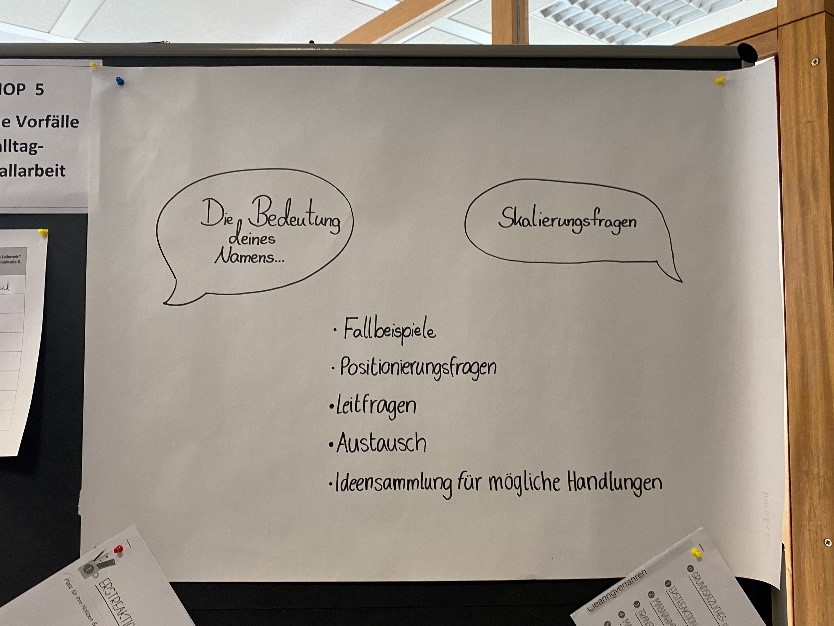 5
e Vorfälle
allarbeit
Die Bedeutung
deines
Namens...
Skalierungsfragen
· Fallbeispiele
· Positionierungsfragen
· Leitfragen
· Austausch
· Ideensammlung für mögliche Handlungen
ERSTREAKTI
Clearingverfahren
GRUNDSÄTZLICHES
ERSTREAKTION